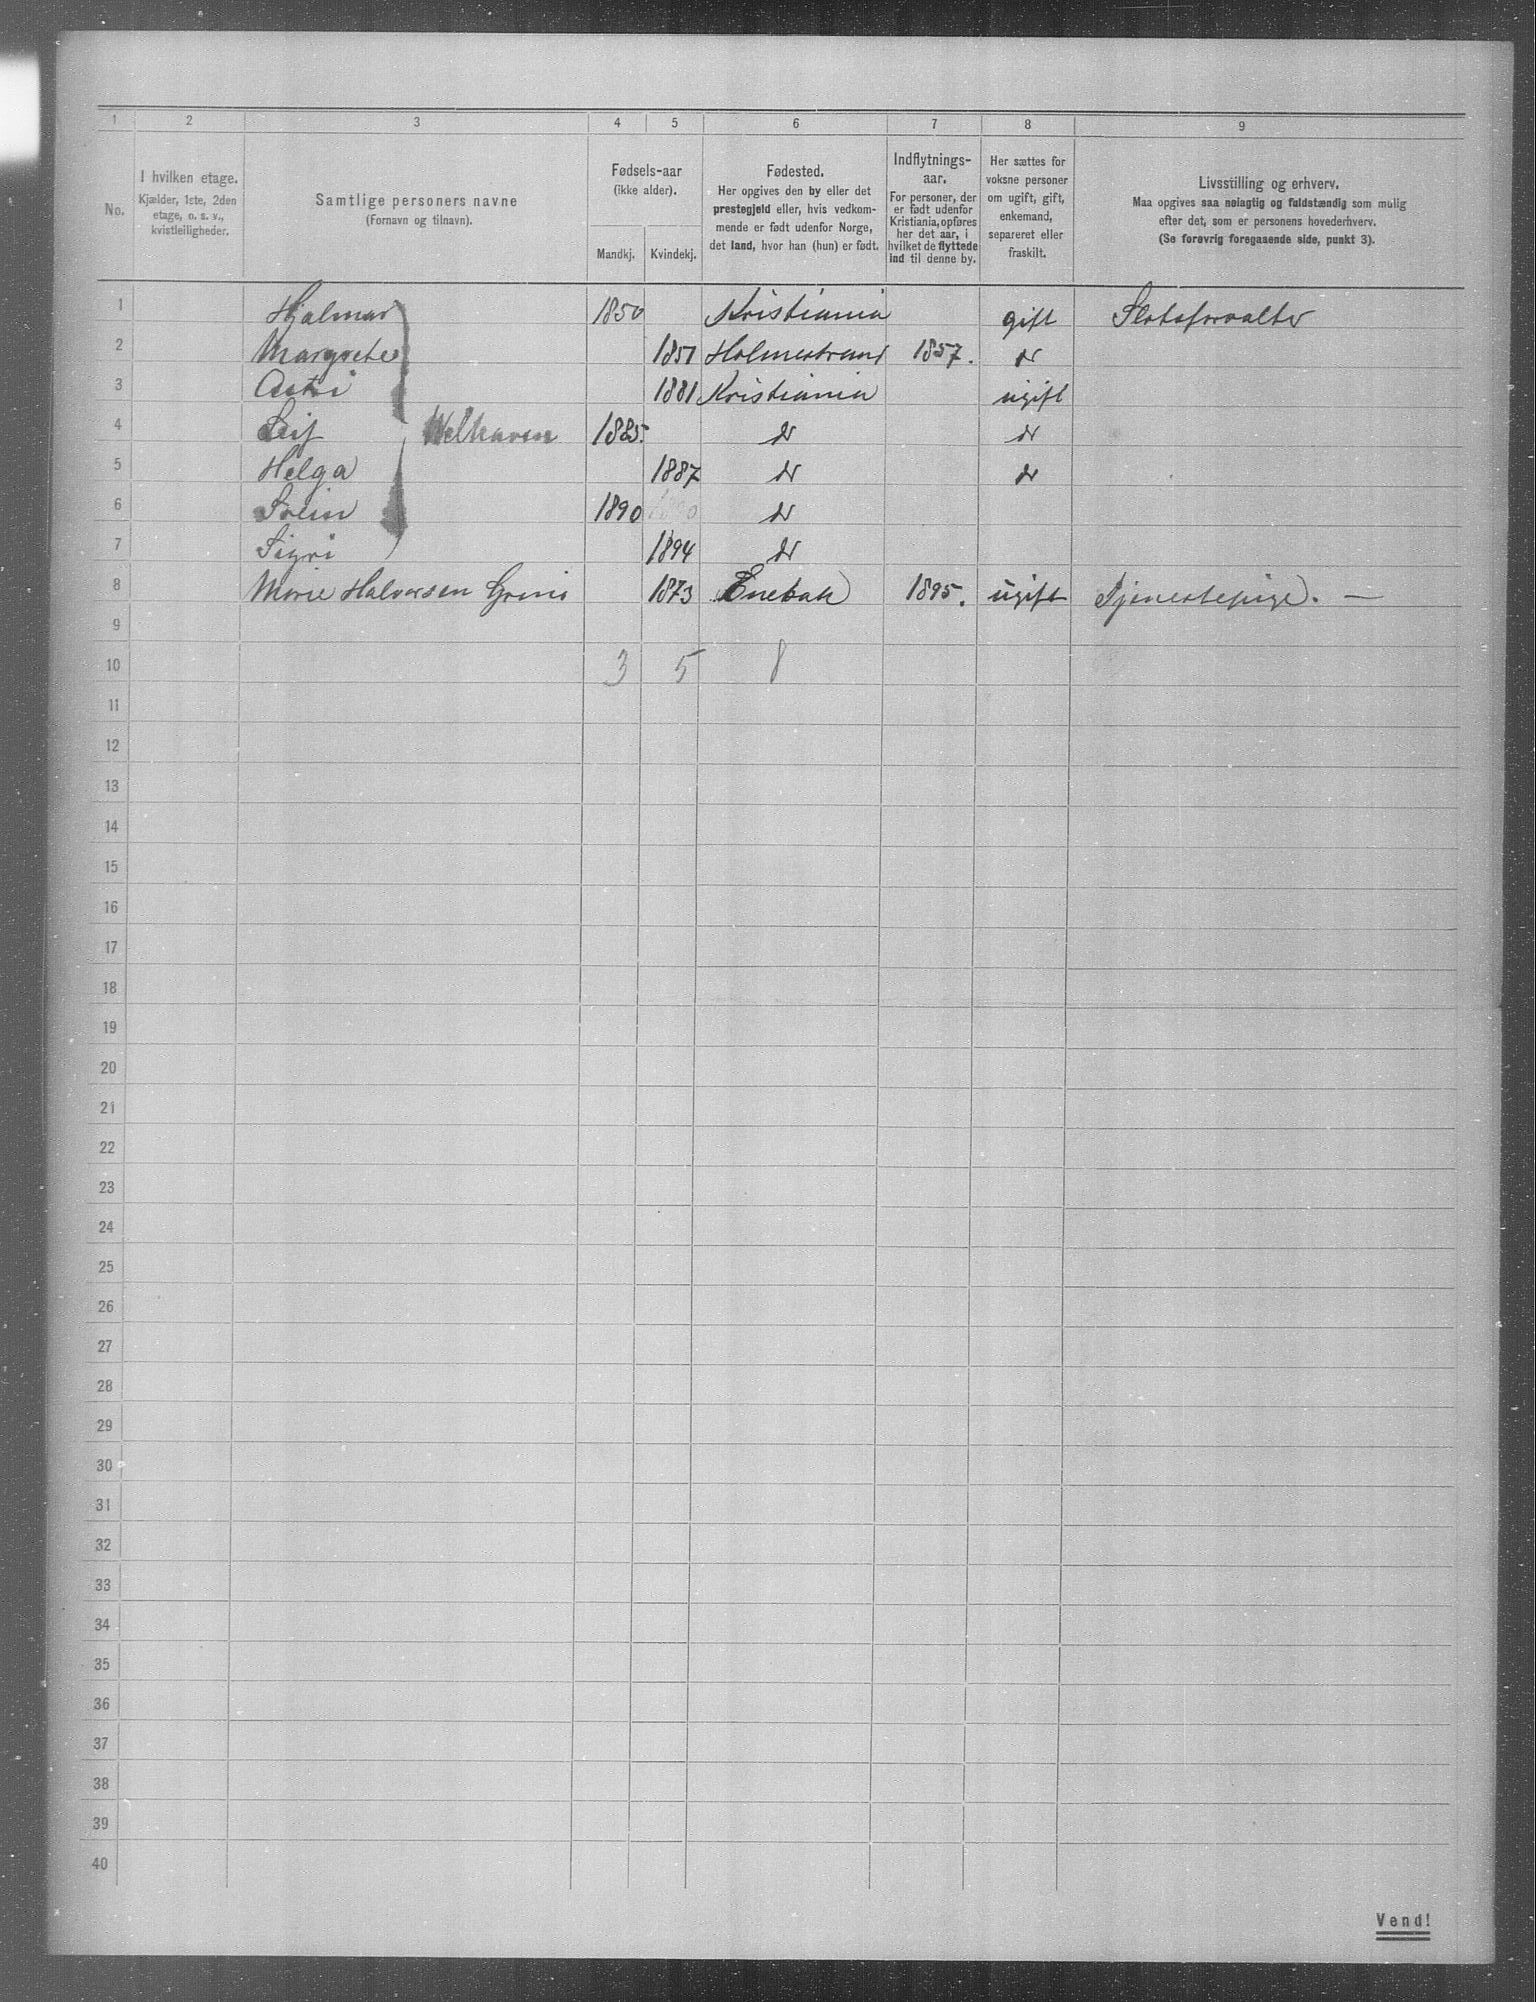 1 2 3 4 5 6 7 8 9
No.
I hvilken etage.
Kjælder, 1ste, 2den
etage, o. s. v.,
kvistleiligheder.
Samtlige personers navne
(Fornavn og tilnavn).
Fødsels-aar
(ikke alder).
Mandkj. Kvindekj.
Fødested.
Her opgives den by eller det
prestegjeld eller, hvis vedkom-
mende er født udenfor Norge,
det land, hvor han (hun) er født.
Indflytnings-
aar.
For personer, der
er født udenfor
Kristiania, opføres
her det aar, i
hvilket de flyttede
ind til denne by.
Her sættes for
voksne personer
om ugift, gift,
enkemand,
separeret eller
fraskilt.
Livsstilling og erhverv.
Maa opgives saa nøiagtig og fuldstændig som mulig
efter det, som er personens hovederhverv.
(Se forøvrig foregaaende side, punkt 3).
1 Hjalmar 1850 Kristiania gift Slotsforvalter
2 Margrete 1851 Holmestrand 1857. do
3 Astri 1881 Kristiania ugift
4 Leif Welhaven 1885. do do
5 Helga 1887 do do
6 Svein 1890 1890 do
7 Sigri 1894 do
8 Marie Halvorsen 1873 Enebak 1895. ugift Tjenestepige. —
9
10 3 5 8
11
12
13
14
15
16
17
18
19
20
21
22
23
24
25
26
27
28
29
30
31
32
33
34
35
36
37
38
39
40
Vend!